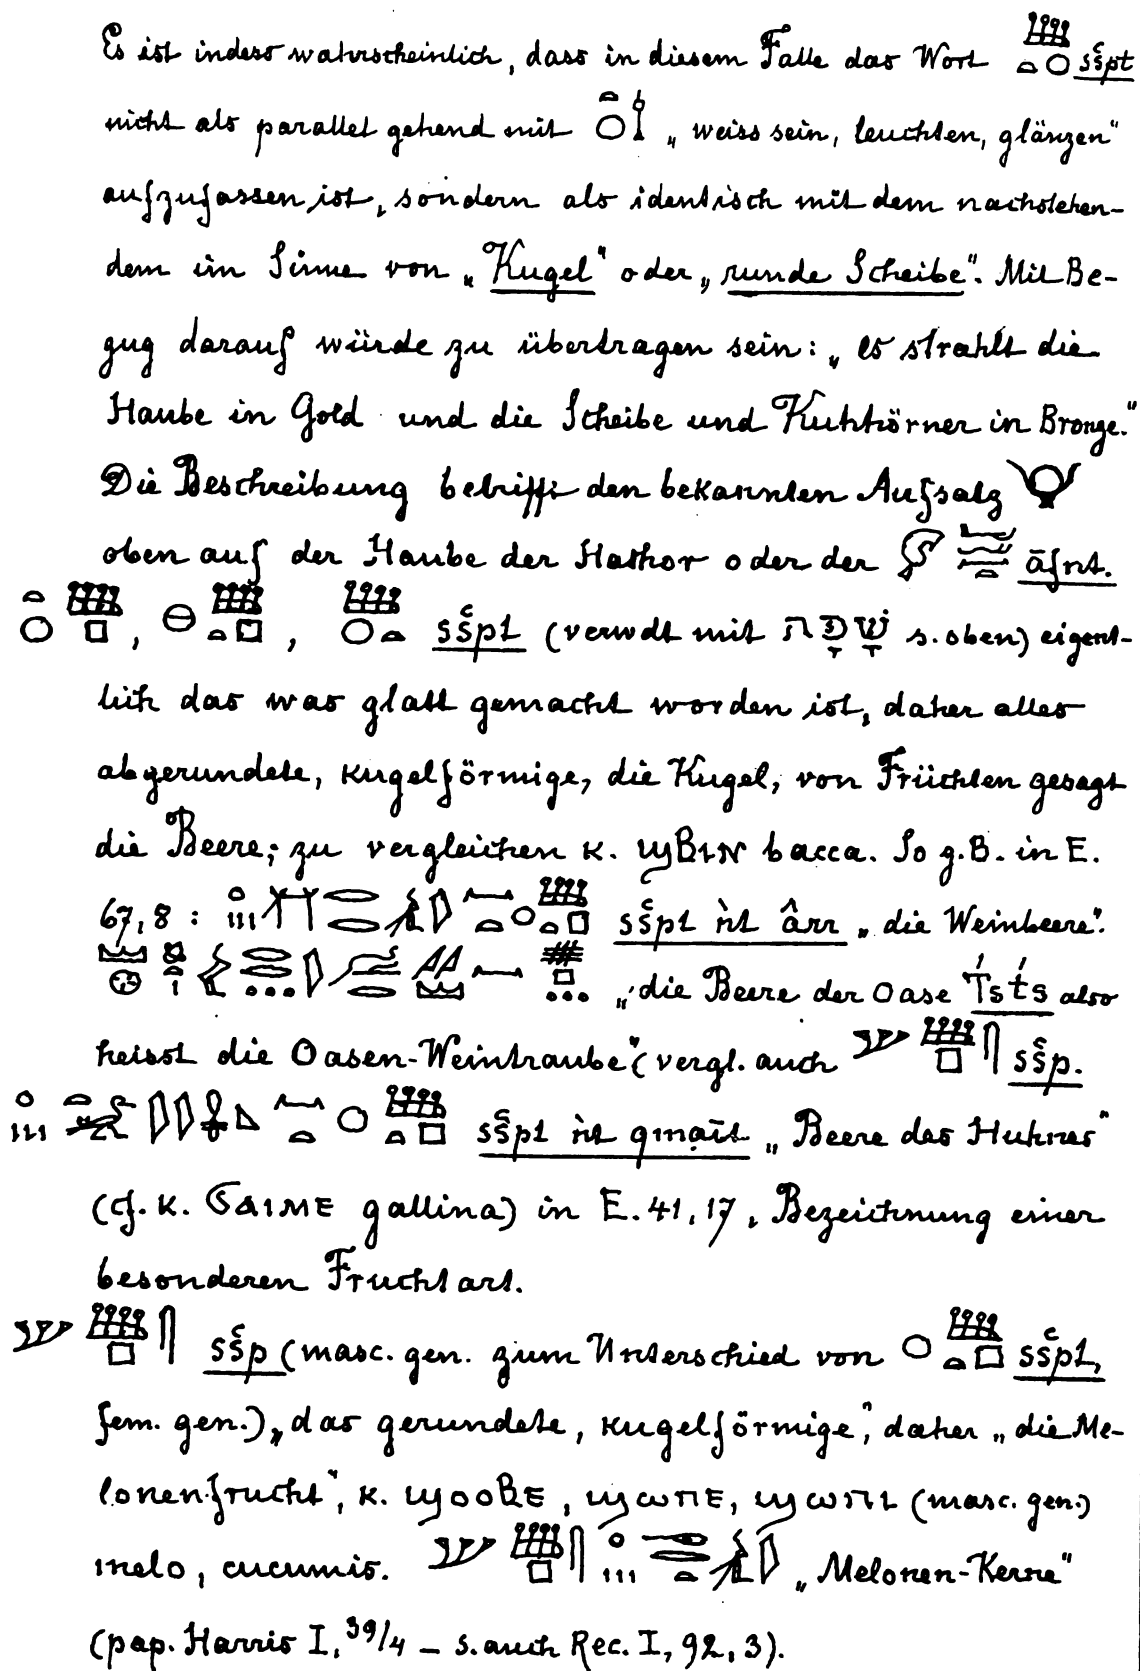 Es ist indess wahrscheinlich, dass in diesem Falle das Wort sšpt
nicht als parallel gehend mit „weiss sein, leuchten, glänzen“
aufzufassen ist, sondern als identisch mit dem nachstehen-
dem im Sinne von „Kugel“ oder „runde Scheibe“. Mit Be-
zug darauf würde zu übertragen sein: „es strahlt die
Haube in Gold und die Scheibe und Kuhhörner in Bronze.“
Die Beschreibung betrifft den bekannten Aufsatz
oben auf der Haube der Hathor oder der āfnt.
, , sšpt (verwdt mit s. oben) eigent-
lich das was glatt gemacht worden ist, daher alles
abgerundete, kugelförmige, die Kugel, von Früchten gesagt
die Beere, zu vergleichen K. ϣⲃⲓⲛ bacca. So z.B. in E.
67,8 : sšpt ǹt ârr „die Weinbeere“.
„die Beere der Oase also
heisst die Oasen-Weintraube“ (vergl. auch sšp.
sšpt ǹt „Beere des Huhnes“
(cf. K. ϭⲁⲓⲙⲉ gallina) in E. 41,17, Bezeichnung einer
besonderen Fruchtart.
sšp (masc. gen. zum Unterschied von sšpt,
fem. gen.) „das gerundete, kugelförmige“, daher „die Me-
lonenfrucht“, K. ϣⲟⲟⲃⲉ, ϣⲱⲡⲉ, ϣⲱⲡⲓ (masc. gen.)
melo, cucumis. „Melonen-Kerne“
(pap. Harris I, 39/4 – s. auch Rec. I, 92, 3).